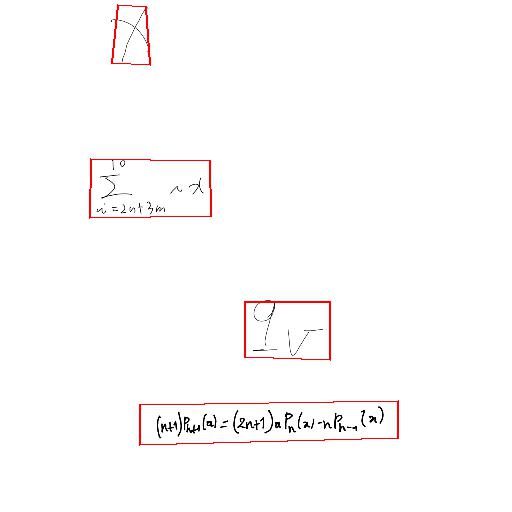 x
\sum_{i=2n+3m}^{10} ix
(n+1)P_{n+1}(x)=(2n+1)xP_n(x)-nP_{n-1}(x)